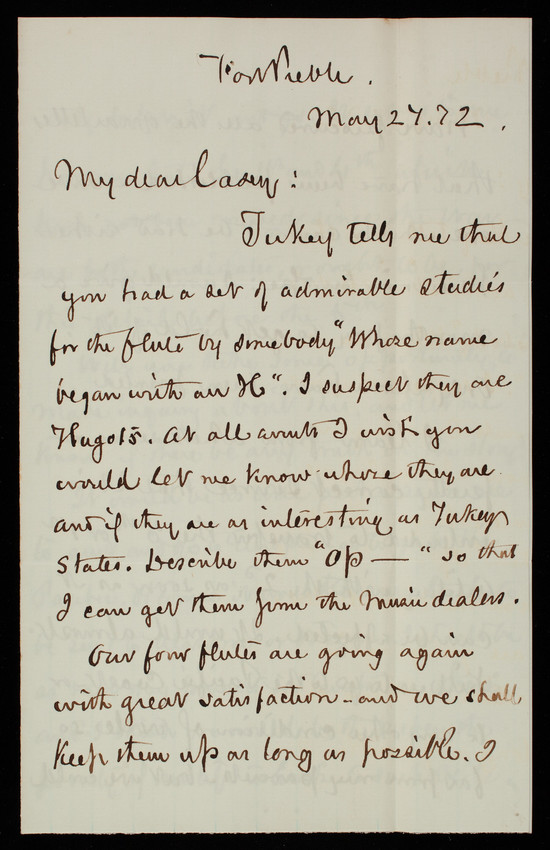 Fort Preble.
May 27.72.
My dear Casey:
Tukey tells me that
you had a set of admirable studies
for the flute by somebody "Whose name
began with an H". I suspect they are
Hugots. At all events I wish you
would let me know whose they are
and if they are as interesting as Tukey
States. Describe them "Op — " so that
I can get them from the music dealers.
Our four flutes are going again
with great satisfaction - and we shall
keep them up as long as possible. I